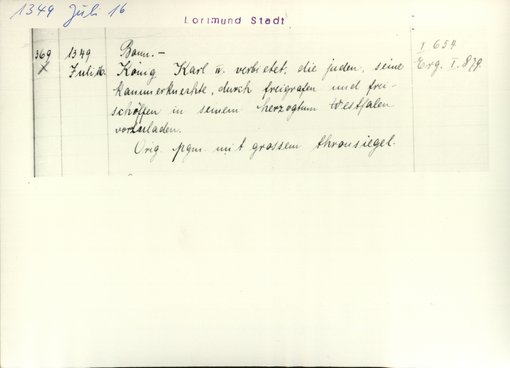 1349 Juli 16
Dortmund Stadt
369 1349 Bonn.- I 654
X Juli 16. König Karl IV. verbietet, die juden, seine Erg. I. 879.
kammerknechte, durch freigrafen und frei-
schöffen in seinem herzogtum Westfalen
vorzuladen.
Orig. pgm. mit grossem thronsiegel.